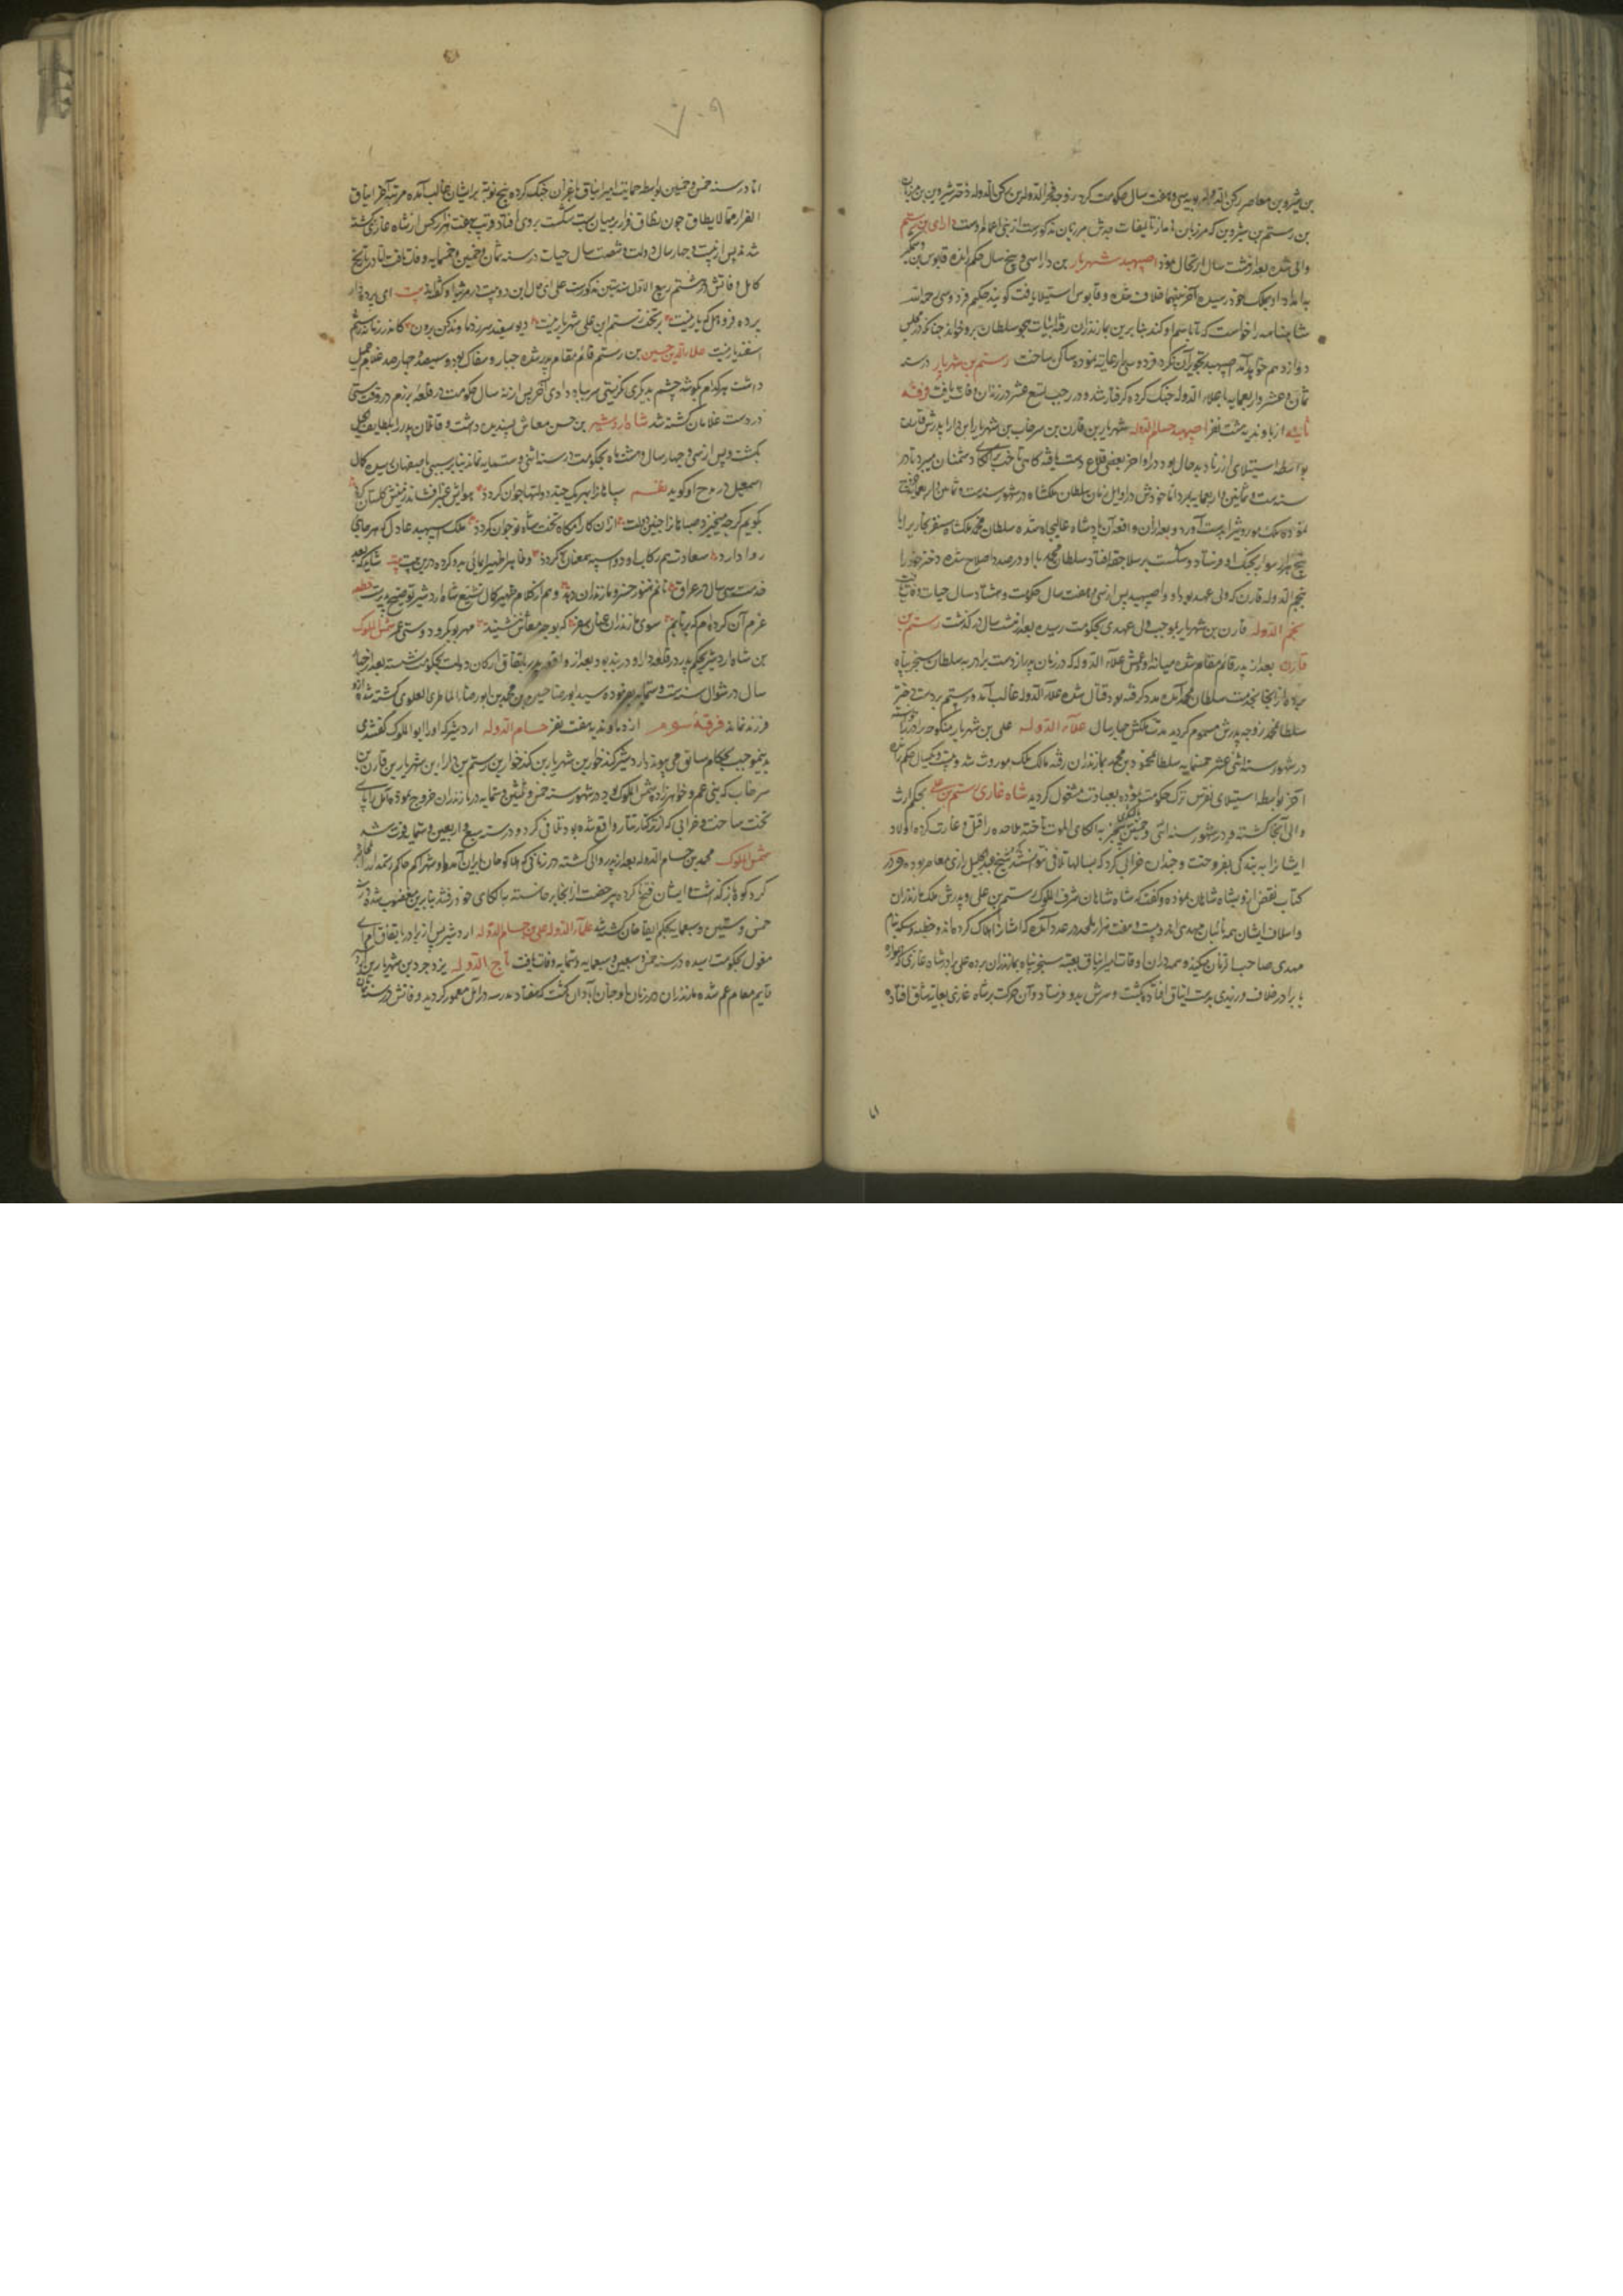 بن شیروین معاصر رکن الدوله بویه سی و هفت سال حکومت کرد زوجه فخر الدوله بن رکن الدوله دختر شروین بن مرزبان
بن رستم بن شیروین که مرزبان نامه از تالیفات جدش مرزبان مذکورست از بنی اعمام اوست دارای بن رستم
والی شده بعد از هشت سال ارتحال نمود اصپهبد شهریار بن دارا سی و پنج سال حکم رانده قابوس بن وشمگیر
به امداد او بملک خود رسیده آخر بینهما خلاف شده و قابوس استیلا یافت گویند حکیم فردوسی رحمه الله
شاهنامه را خواست که بنام او کند بنابرین بمازندران رفته ابیات هجو سلطان برو خواند چنانکه در مجلس
دوازدهم خواهد آمد اصپهبد تجویز آن نکرد و فردوسی را رعایت نموده ساکن ساخت رستم بن شهریار در سنه
ثمان عشر و اربعمایه با علاء الدوله جنک کرده گرفتار شد و در رجب تسع عشر در زندان وفات یافت فرقه
ثانیه از باوندیه هشت نفر اصپهبد حسام الدوله شهریار بن قارن بن سرخاب بن شهریار ابن دارا پدرش قارن
بواسطه استیلای از نار بدحال بود در اواخر بعضی قلاع دست یافته کاهی تاخت بر دشمنان میبرد تا در
سنه ست و ثمانین و اربعمایه بمرد اما خودش در اوایل زمان سلطان ملکشاه در شهور سنه ست و ثمانین و اربعمایه خروج
نموده ملک موروث را بدست آورد و بعد از آن واقعه آن پادشاه عالیجاه شده سلطان محمد ملکشاه سنقر بخاری را با
پنج هزار سوار بجنک او فرستاد و شکست بر سلاجقه افتاد سلطان محمد با او در صدد اصلاح شده دختر خود را
بنجم الدوله قارن که ولی عهد بود داد و اصپهبد پس از سی و هفت سال حکومت و هشتاد سال حیات وفات یافت
نجم الدوله قارن بن شهریار بموجب ولی عهدی بحکومت رسیده بعد از هشت سال درگذشت رستم بن
قارن بعد از پدر قائم مقام شده میانه او و عمش علاء الدوله که در زمان پدر از دست برادر به سلطان سنجر پناه
برده از انجا بخدمت سلطان محمد آمده مدد گرفته بود قتال شده علاء الدوله غالب آمد و رستم بر دست دختر
سلطان محمد زوجه پدرش مسموم گردید مدت ملکش چهار سال علاء الدوله علی بن شهریار
در شهور سنه اثنی عشر خمسمایه سلطان محمود بن محمد بمازندران رفته مالک ملک موروث شد و بیست و یکسال حکم رانده
آخر بواسطه استیلای نقرس ترک حکومت نموده بعبادت مشغول گردید شاه غازی رستم بن علی بحکم ارث
والی آنجا گشته و در شهور سنه اثنی و خمسین به الکای الموت تاخته ملاحده را قتل و غارت کرده اولاد
ایشان را به بندگی بفروخت و چندان خرابی کرد که بسالها تلافی نتوانستند شیخ عبد الجلیل رازی معاصر بوده و در
کتاب نقض از و بشاه شاهان نموده و گفته که شاه شاهان شرف الملوک رستم بن علی و پدرش ملک مازندران
و اسلاف ایشان همه نائبان مهدی اند و بیست و هفت هزار ملحد در عدد آمده که ایشان را هلاک کرده اند و خطبه و سکه بنام
مهدی صاحب الزمان میکنند و همدران اوقات امیر ایناق بعینه سنجر پناه بمازندران برده علی برادر شاه غازی که همواره
با برادر خلاف ورزیدی بدست ایناق افتاد بکشت و سرش بدو فرستاد و آن حرکت بر شاه غازی بغایت شاق افتاد
اما در سنه خمس و خمسین بواسطه حمایت امیر ایناق با غزان جنک کرده پنج نوبت بر ایشان غالب آمده مرتبه آخر ایناق
الفرار مما لا یطاق چون نطاق فرار بر میان بست شکست بروی افتاد و قریب هفت هزار کس از شاه غازی کشته
شد و پس از بیست و چهار سال دولت و شصت سال حیات در سنه ثمان و خمسین و خمسمایه وفات یافت اما در تاریخ
کامل وفاتش در هشتم ربیع الاول سنه ستین مذکورست علی ای حال این دو بیت در مرثیه او گفته اند بیت ای پرده دار
پرده فرو هل که بار نیست بر تخت رستم ابن علی شهریار نیست دیو سفید سر ز دماوند کن برون کاندر زمانه رستم
اسفندیار نیست علاء الدین حسین بن رستم قائم مقام پدر شده جبار و سفاک بود و سیصد چهارصد غلام جمیل
داشت هرکدام بگوشه چشم بدیگری نگریستی سر بباد دادی آخر پس از نه سال حکومت در قلعه برزم در وقت مستی
در دست غلامان کشته شد شاه اردشیر بن حسن معاش پسندیده داشت و قاتلان پدر را بلطایف الحیل
بکشت و پس از سی و چهار سال و هشت ماه بحکومت در سنه اثنی و ستمایه نماند بنابر سببی با صفهانی رسیده کمال
اسمعیل در مدح او گوید نظم سپاهان را بهر یک چند دولتها جوان گردد هوایش عنبر افشاند زمینش گلستان گردد
بگویم گرچه میخیزد صبا ما را چنین دولت ازان کارامگاه تخت شاه نوجوان گردد ملک اسپهبد عادل که هر جای
روا دارد سعادت هم رکاب او دو اسپه همعنان گردد و فایر ظهیر فاریابی بدو کرده درین بیت بیت شاید که بعد
خدمت سی سال در عراق نانم هنوز خسرو مازندران دهد و هم از کلام ظهیر کمال تشیع شاه اردشیر توضیح پذیرست قطعه
عزم آن کرده ام که برتابم سوی مازندران عنان سفر که بوجه معاش بنشیند مهر بوبکر و دوستی عمر شمس الملوک
بن شاه اردشیر بحکم پدر در قلعه دارا در بند بود بعد از واقعه پدر باتفاق ارکان دولت بحکومت نشست بعد از چهار
سال در شوال سنه ست و ستمایه سید ابو رضا حسین بن محمد بن ابو رضا الماطری العلوی کشته شد ازو
فرزند نماند فرقه سوم از باوندیه هفت نفر حسام الدوله اردشیر که او را ابو الملوک گفتندی
بدینموجب بحکام سابق می پیوندد اردشیر کندخوار بن شهریار بن کندخوار بن رستم بن دارا ابن شهریار بن قارن بن
سرخاب که بنی عم و خواهر زاده شمس الملوک بود در شهور سنه خمس و ثلثین و ستمایه در مازندران خروج نموده آمل را پای
تخت ساخت و خرابی که از تکتار تتار واقع شده بود تلافی کرد و در سنه سبع و اربعین و ستمایه فوت شد
شمس الملوک محمد بن حسام الدوله بعد از پدر والی گشته در زمانی که هلاکو خان بایران آمد او و شهراکیم حاکم رستمدار
گرد کوه باز گذاشت و ایشان فتح ناکرده بی رخصت از انجا برخاسته به الکای خود رفتند بنابرین مغضوب شده در
خمس و ستین و سبعمایه بحکم ابقا خان کشته شد علاء الدوله علی بن حسام الدوله اردشیر پس از برادر باتفاق امرای
مغول بحکومت رسیده در سنه خمس و سبعین و سبعمایه و ستمایه وفات یافت تاج الدوله یزدجرد بن شهریار بن
قایم مقام عم شده مازندران در زمان او چنان آبادان گشت که هفتاد مدرسه در آمل معمور گردید و وفاتش در سنه ثمان